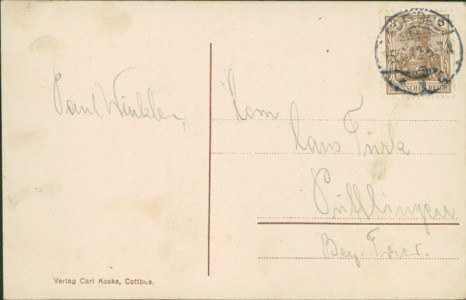 Paul Winkler,
Herrn
Hans Türk
Püttlingen
Bez. Trier.
DEUTSCHES REICH
Verlag Carl Koske, Cottbus.